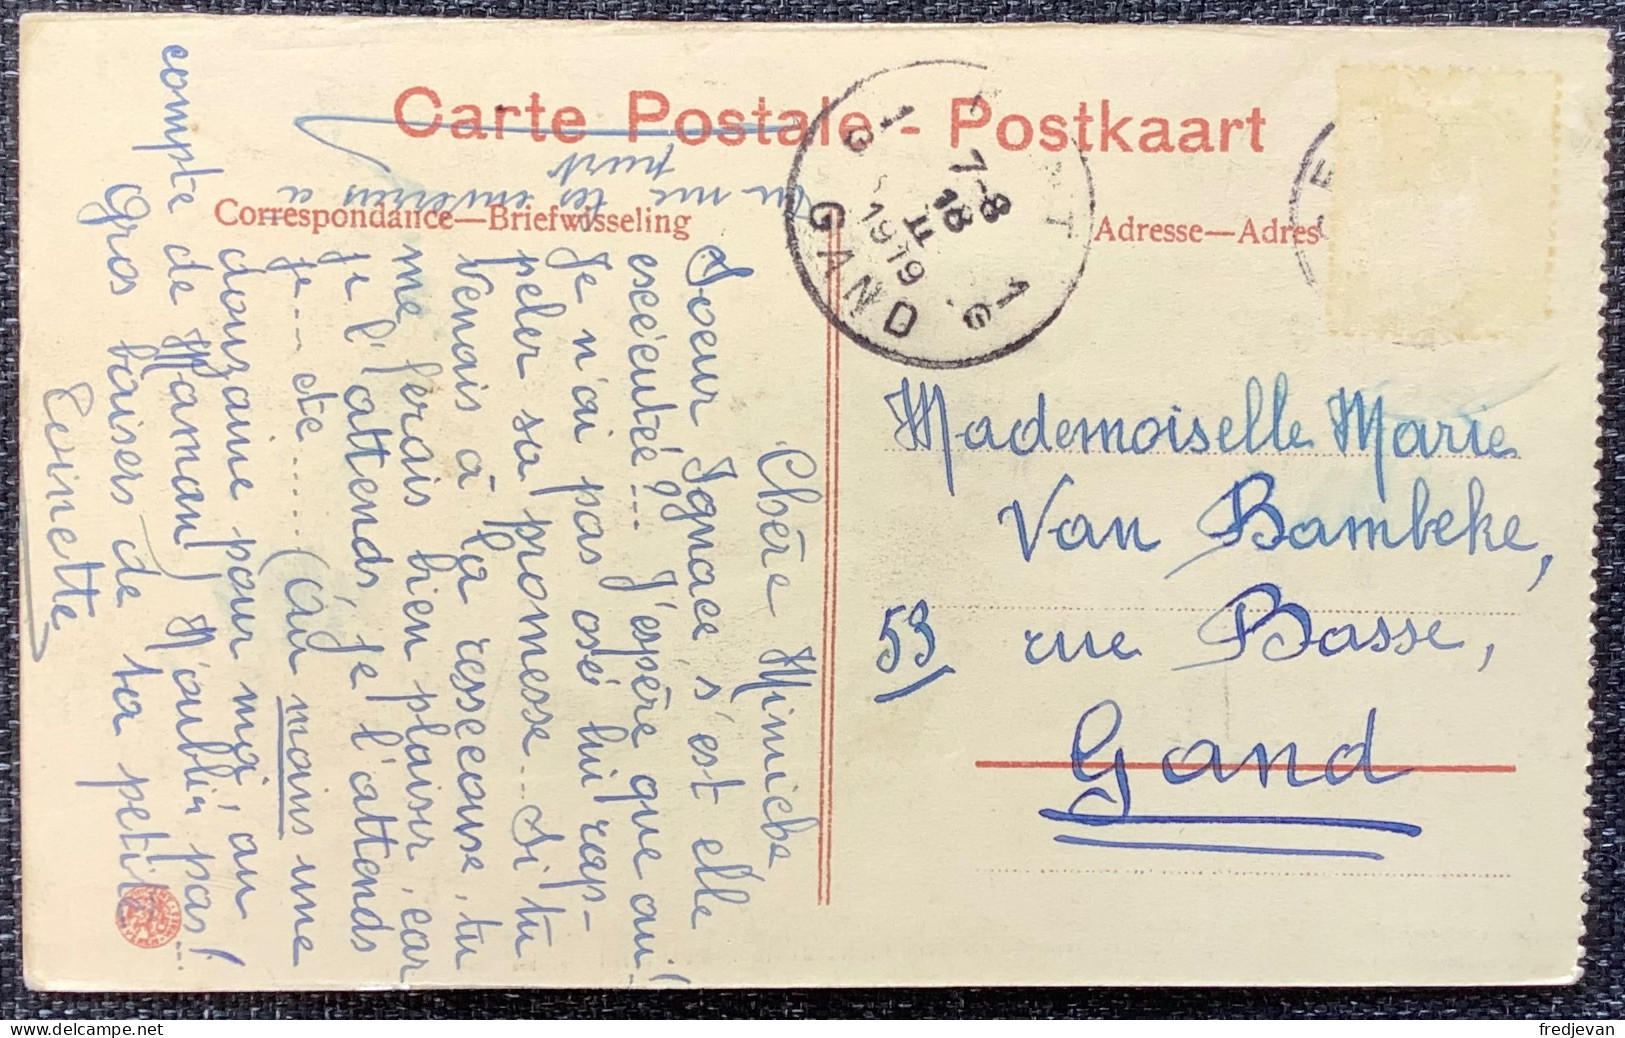 Carte Postale - Postkaart
Correspondance—Briefwisseling
Adresse—Adres
GENT 1G
7-8
18 II
1919
1G GAND
Chère Mimiche
Soeur Ignace, s'est elle
esécéutée?... J'espère que oui!
Je n'ai pas osé lui rap-
peler sa promesse... Si tu
Venais à la resscousse, tu
me ferais bien plaisir, car
je l'attends, je l'attends
je... etc...... (Au moins une
douzaine pour moi, au
compte de Maman) N'oublie pas!...
Gros baisers de ta petite
Toinette
Tu me les enverras à
part
Mademoiselle Marie
Van Bambeke,
53, rue Basse,
Gand
fredjevan